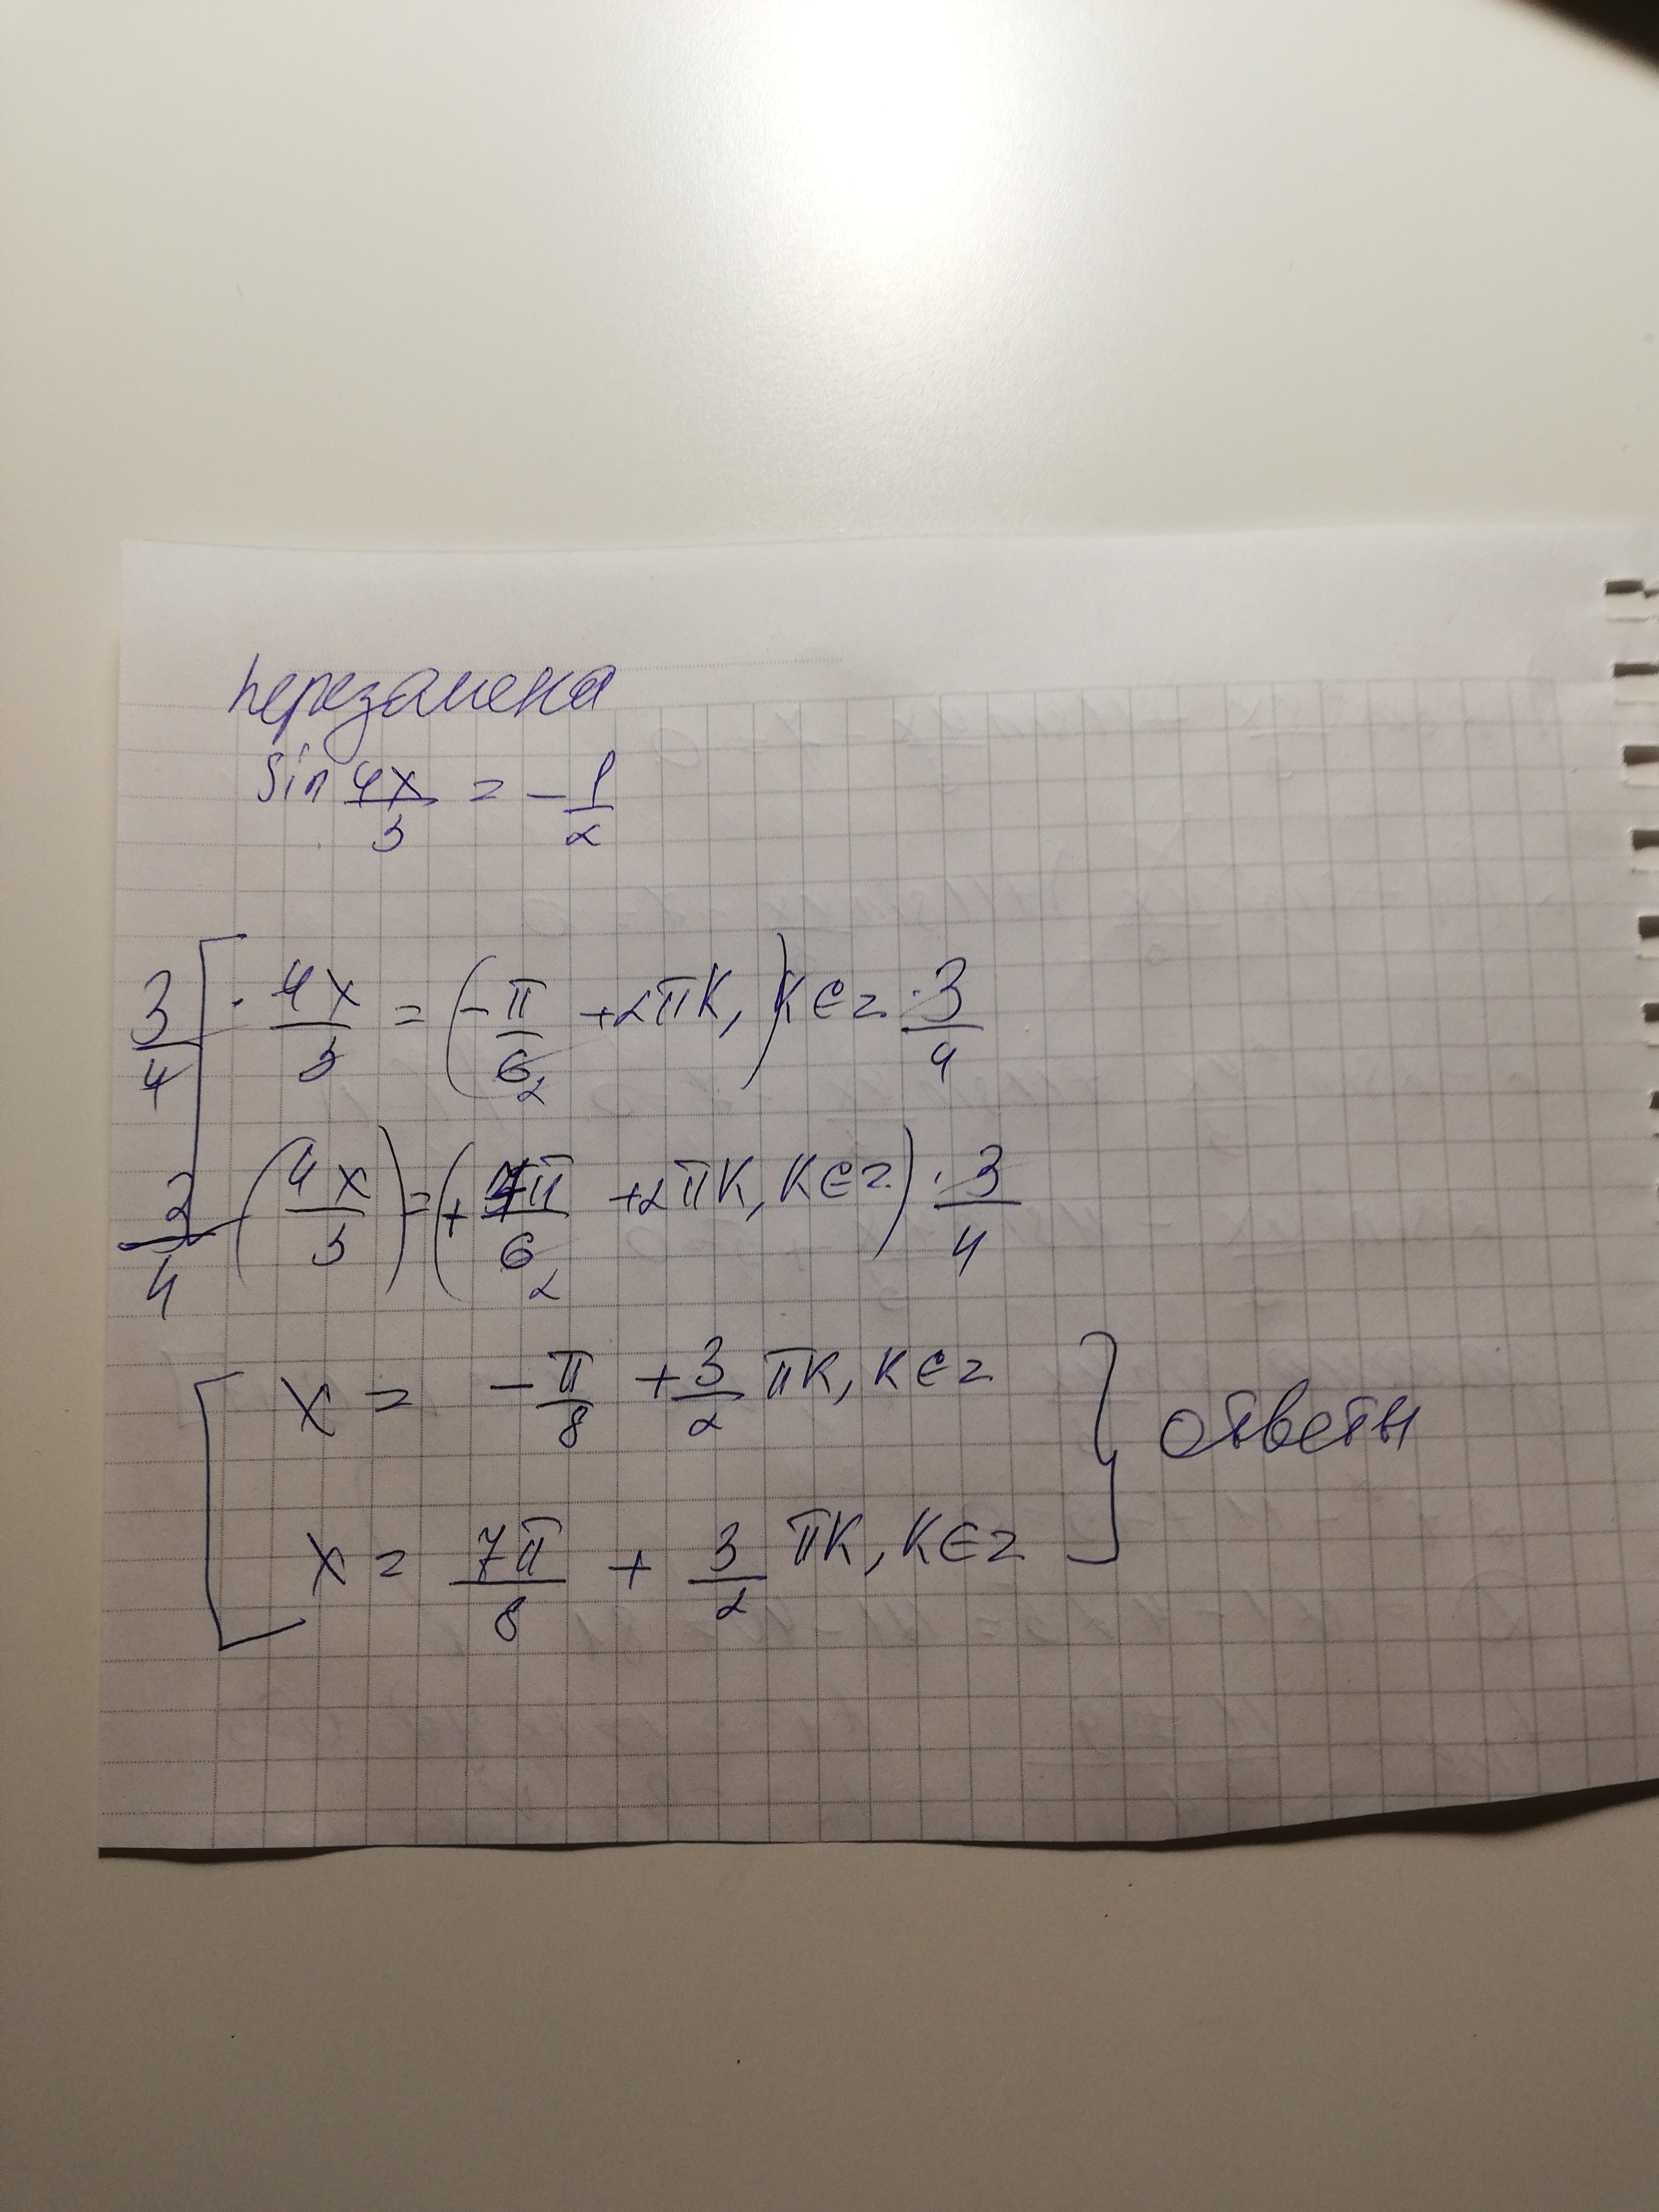 перезамена
sin 4x/3 = -1/2
3/4 [ · 4x/3 = (-π/6 + 2πk,) k∈z · 3/4
3/4 (4x/3) = (+7π/6 + 2πk, k∈z) · 3/4
x = -π/8 + 3/2 πk, k∈z
ответы
x = 7π/8 + 3/2 πk, k∈z